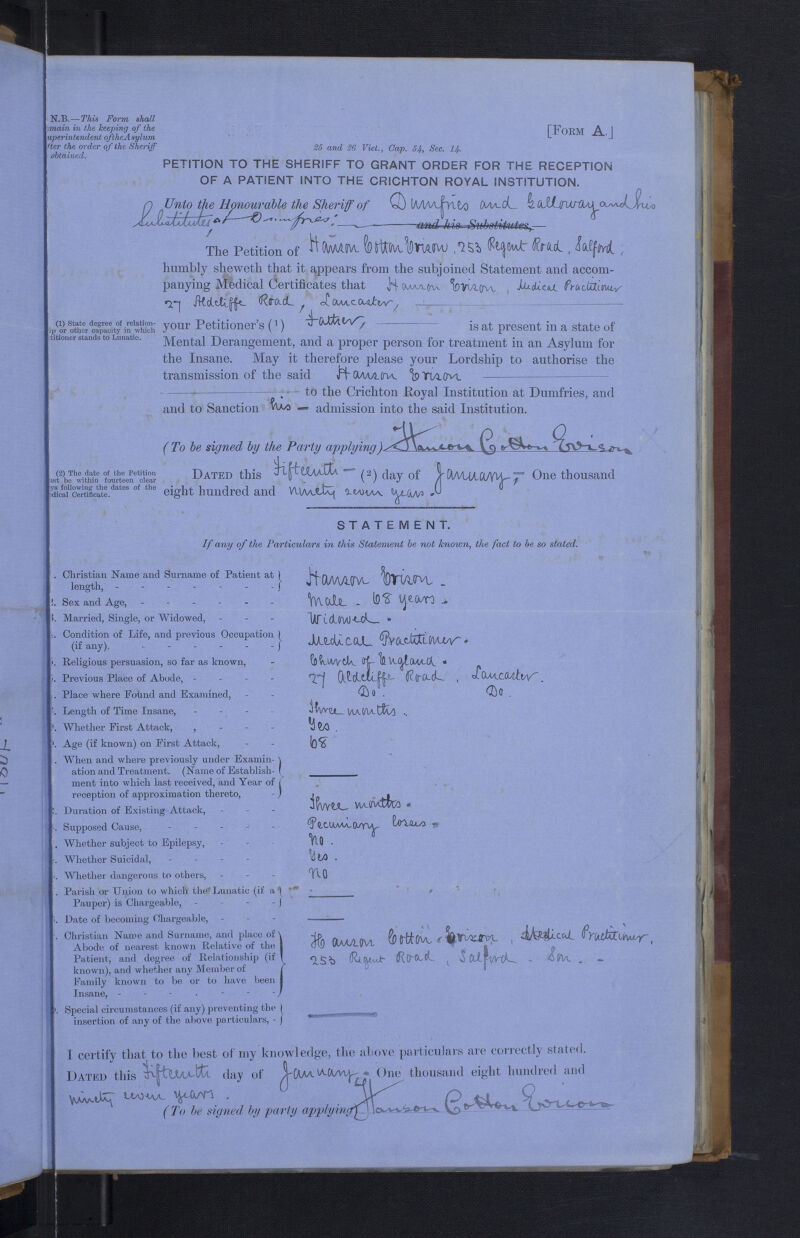 N.B.—This Form shall
main in the keeping of the
uperintendent of the Asylum
ter the order of the Sheriff
obtained.
[FORM A.]
25 and 26 Vict., Cap. 54, Sec. 14.
PETITION TO THE SHERIFF TO GRANT ORDER FOR THE RECEPTION
OF A PATIENT INTO THE CRICHTON ROYAL INSTITUTION.
Unto the Honourable the Sheriff of Dumfries and Galloway and his
Substitutes at Dumfries: and his Substitutes,
The Petition of Hanson Cotton Evison, 253 Regent Road, Salford,
humbly sheweth that it appears from the subjoined Statement and accom-
panying Medical Certificates that Hanson Evison, Medical Practitioner
27 Aldcliffe Road, Lancaster,
(1) State degree of relation-
ip or other capacity in which
titioner stands to Lunatic.
your Petitioner's (1) Father, is at present in a state of
Mental Derangement, and a proper person for treatment in an Asylum for
the Insane. May it therefore please your Lordship to authorise the
transmission of the said Hanson Evison
to the Crichton Royal Institution at Dumfries, and
and to Sanction his — admission into the said Institution.
(To be signed by the Party applying) Hanson Cotton Evison
(2) The date of the Petition
ust be within fourteen clear
ys following the dates of the
dical Certificate.
DATED this Fifteenth — (2) day of January, One thousand
eight hundred and ninety seven years.
STATEMENT.
If any of the Particulars in this Statement be not known, the fact to be so stated.
. Christian Name and Surname of Patient at length, - Hanson Evison -
. Sex and Age, - Male - 68 years -
. Married, Single, or Widowed, - Widowed -
. Condition of Life, and previous Occupation (if any). - Medical Practitioner.
. Religious persuasion, so far as known, - Church of England.
. Previous Place of Abode, - 27 Aldcliffe Road, Lancaster.
. Place where Found and Examined, - Do. Do.
. Length of Time Insane, - Three months.
. Whether First Attack, - Yes.
. Age (if known) on First Attack, - 68
. When and where previously under Examin-
ation and Treatment. (Name of Establish-
ment into which last received, and Year of
reception of approximation thereto,
. Duration of Existing Attack, - Three months.
. Supposed Cause, - Pecuniary losses
. Whether subject to Epilepsy, - No.
. Whether Suicidal, - Yes.
. Whether dangerous to others, - No
. Parish or Union to which the Lunatic (if a
Pauper) is Chargeable, -
. Date of becoming Chargeable, -
. Christian Name and Surname, and place of Hanson Cotton Evison, Medical Practitioner,
Abode of nearest known Relative of the 253 Regent Road, Salford - Son. -
Patient, and degree of Relationship (if
known), and whether any Member of
Family known to be or to have been
Insane, -
. Special circumstances (if any) preventing the
insertion of any of the above particulars, -
I certify that to the best of my knowledge, the above particulars are correctly stated.
DATED this Fifteenth day of January One thousand eight hundred and
ninety seven years.
(To be signed by party applying) Hanson Cotton Evison